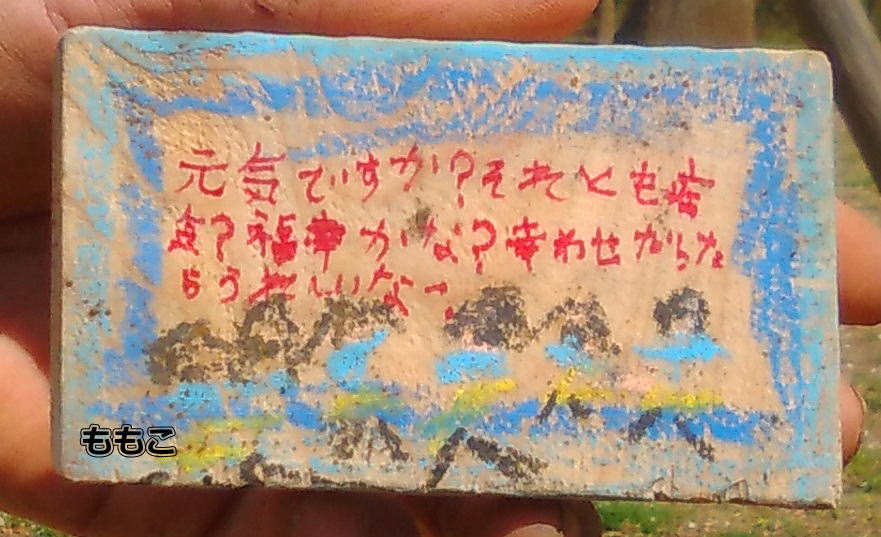 元気ですか？それとも病
気？福幸かな？幸わせがらた
らうれしいなー。
ももこ